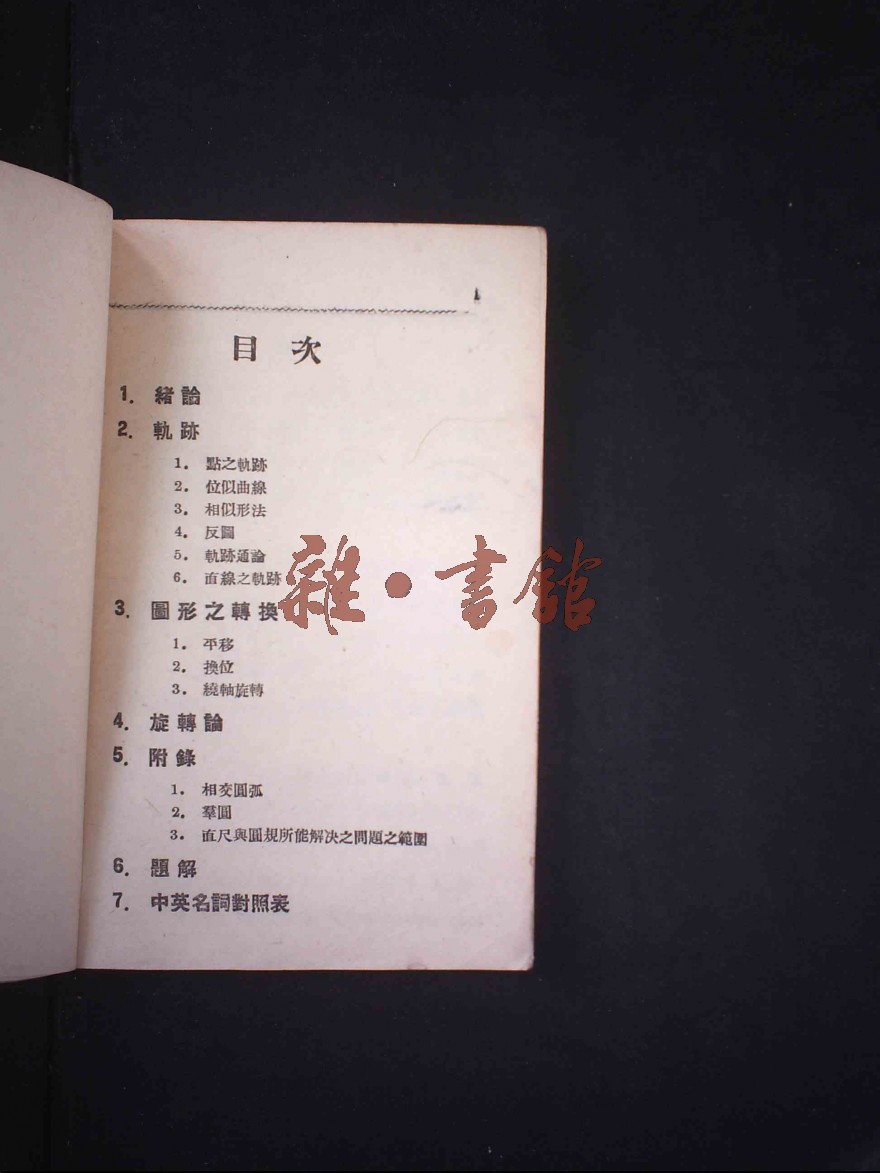 目次
1. 緒論
2. 軌跡
1. 點之軌跡
2. 位似曲線
3. 相似形法
4. 反圖
5. 軌跡通論
6. 直線之軌跡
雜·書館
3. 圖形之轉換
1. 平移
2. 換位
3. 繞軸旋轉
4. 旋轉論
5. 附錄
1. 相交圓弧
2. 羣圓
3. 直尺與圓規所能解决之問題之範圍
6. 題解
7. 中英名詞對照表